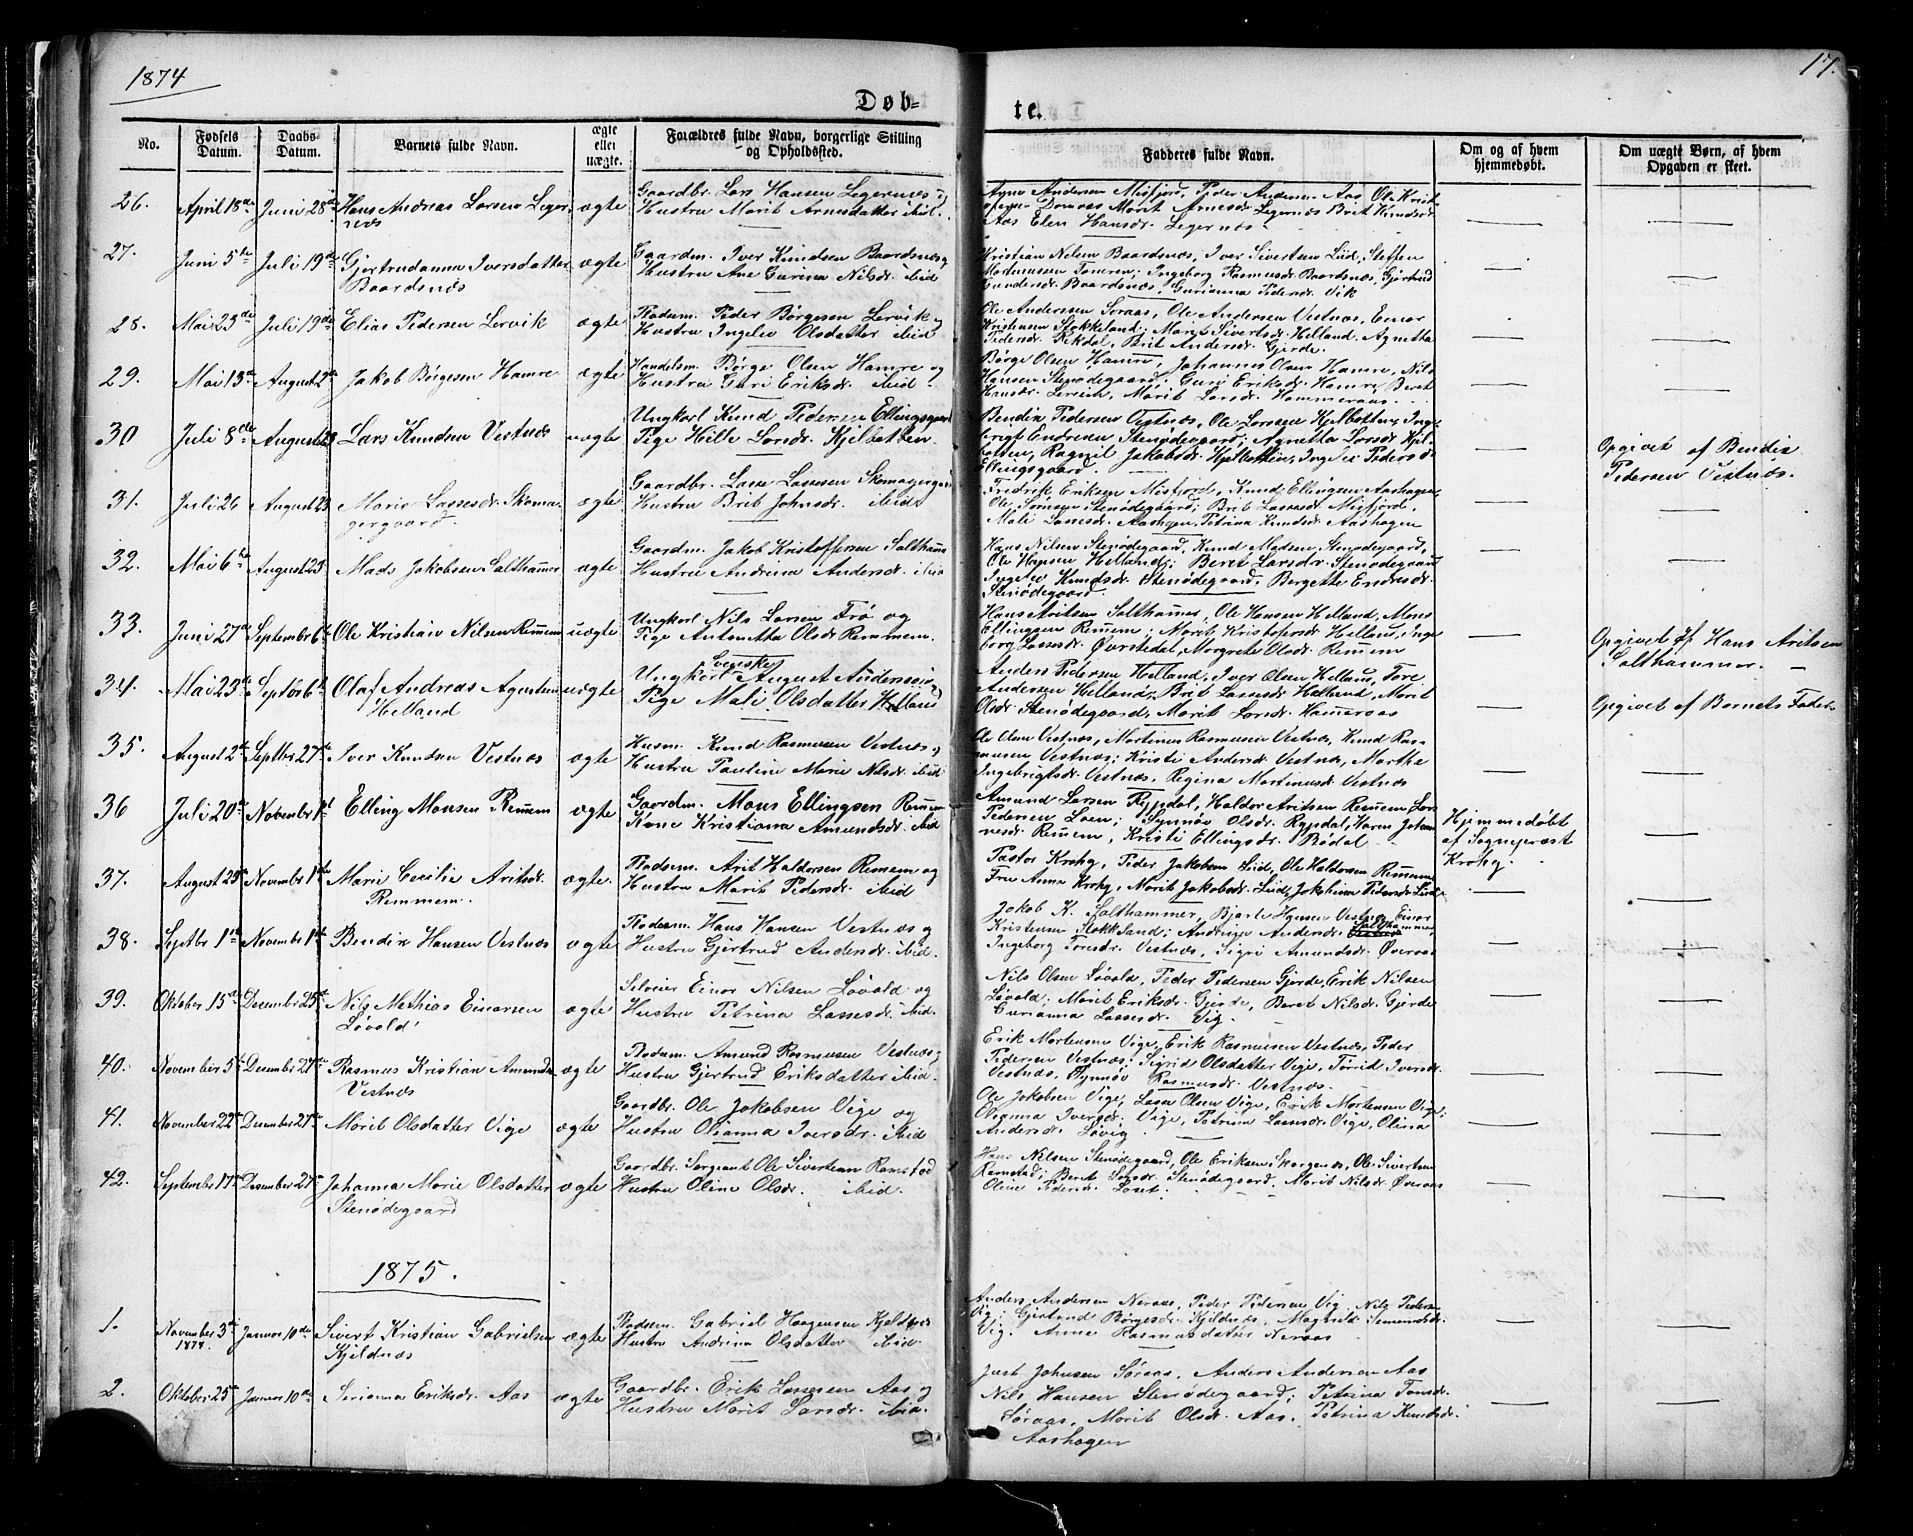 1874
17.
Døb=
te.
No.
Fødsels Datum.
Daabs Datum.
Barnets fulde Navn.
ægte eller uægte.
Forældres fulde Navn, borgerlige Stilling og Opholdssted.
Fadderes fulde Navn.
Om og af hvem hjemmedøbt.
Om uægte Børn, af hvem Opgaven er skeet.
26. April 18de Juni 28de Hans Andreas Larsen Leger- ægte Gaardbr. Lars Hansen Legernæs og
næs Hustru Marit Arnesdatter ibid.
Arne Andersen Misfjord, Peder Andersen Aas Ole Krist-
Marit Arnesdr. Legernæs Brit Knudsdr.
Aas Elen Hansdr. Legernæs.
27. Juni 5te Juli 19de Gjertrudanna Iversdatter ægte Gaardm. Iver Knudsen Baardsnæs og
Baardsnæs Hustru Ane Gurina Nilsdr. ibid
Kristian Nilsen Baardsnæs, Iver Sivertsen Lied, Steffen
Mortensen Tomren; Ingeborg Rasmusdr. Baardsnæs, Gjertrud
Gundersdr. Baardsnæs, Gurianna Pedersdr. Vik
28. Mai 23de Juli 19de Elias Pedersen Lervik ægte Pladsm. Peder Børgesen Lervik og
Hustru Ingelev Olsdatter ibid
Ole Andersen Søraas, Ole Andersen Vestnæs, Einar
Kristensen Stokkeland. Marit Sivertsdr. Helland. Agnetha
Pedersdr. Rekdal, Brit Andersdr. Gjerde.
29. Mai 13de August 2de Jakob Børgesen Hamre ægte Handelsm. Børge Olsen Hamre og
Hustru Guri Eriksdr. ibid.
Børge Olsen Hamre, Johannes Olsen Hamre, Nils
Hansen Stenødegaard; Guri Eriksdr. Hamre, Beret
Hansdr. Lereim, Marit Larsdr. Hammeraas.
30 Juli 8de August 23 Lars Knudsen Vestnæs uægte Ungkarl Knud Pedersen Ellingsgaard
Pige Hille Larsdr. Kjelbotten
Bendix Pedersen Vestnæs, Ole Larsen Kjelbotten, Ing-
brigt Endresen Stenødegaard; Agnetta Larsdr Kjel-
botten, Ragnil Jakobsdr. Kjelbotten, Pedersdr
Ellingsgaard.
Opgivet af Bendix
Pedersen Vestnæs.
31. Juli 26 August 23 Marie Lassesdr. Skoma- ægte Gaardbr. Lasse Lassesen Skomagergaard
gergaard. Hustru Brit Johnsdr. ibid
Fredrik Eriksen Misfjord, Knud Ellingsen Aashagen
Ole Simensen Stenødegaard; Brit Lassesdr. Misfjord,
Mali Lassesdr. Aashagen, Petrina Knudsdr. Aashagen
32. Mai 6te August 23 Mads Jakobsen Salthammer ægte Gaardm. Jakob Kristoffersen Salthammer
Hustru Andrina Andersdr. ibid
Hans Nilsen Stenødegaard, Knud Madsen Stenødegaard,
Ole Hansen Helland; Beret Larsdr. Stenødegaard
Ingelev Knudsdr. Stenødegaard, Bergette Endresdr.
Stenødegaard.
33. Juni 27de September 6te Ole Kristian Nilsen Remmem uægte Ungkarl Nils Larsen Frø og
Pige Antonetta Olsdr. Remmem.
Hans Aritsen Salthammer, Ole Hansen Helland, Mons
Ellingsen Remmem; Marit Kristofersdr. Helland, Inge-
borg Lassesdr. Øvstedal, Margrete Olsdr. Remmem
Opgivet af Hans Aritsen
Salthammer.
34. Mai 23de Septbr 6te Olaf Andreas Agustsen uægte Ungkarl Svensker August Andersson,
Helland Pige Mali Olsdatter Helland
Anders Pedersen Helland, Iver Olsen Helland, Tore
Andersen Helland, Brit Lassesdr. Helland, Marit
Olsdr. Stenødegaard, Marit Larsdr. Hammeraas
Opgivet af Barnets Fader.
35. August 2de Septbr 27de Iver Knudsen Vestnæs ægte Husm. Knud Rasmussen Vestnæs og
Hustru Pauline Marie Nilsdr. ibid
Ole Olsen Vestnæs, Martinus Rasmussen Vestnæs, Knud Ras-
mussen Vestnæs; Kristi Andersdr. Vestnæs, Marthe
Ingebrigtsdr. Vestnæs, Regina Martinusdr. Vestnæs
36 Juli 20de November 1ste Elling Monsen Remmem ægte Gaardm. Mons Ellingsen Remmem
Kone Kristiana Amundsdr. ibid
Amund Larsen Rypdal, Haldor Aritsen Remmem, Lars
Pedersen Loen; Synnøv Olsdr. Rypdal, Karen Johan-
nesdr. Remmem, Kristi Ellingsdr. Bødal.
Hjemmedøbt
af Sognepræst
Krohg.
37. August 29de November 1ste Marie Cecilie Aritsdr. ægte. Pladsm. Arit Haldorsen Remmem og
Remmem. Hustru Marit Pedersdr. ibid
Pastor Krohg, Peder Jakobsen Lied, Ole Haldorsen Remmem
Fru Anna Krohg, Marit Jakobsdr. Lied, Jokobina Pedersdr. Lied.
38. Septbr 1ste November 1ste Bendix Hansen Vestnæs ægte Pladsm. Hans Hansen Vestnæs og
Hustru Gjertrud Andersdr. ibid.
Jakob K. Salthammer, Bjarte Hansen Vestnæs, Einar
Kristensen Stokkeland; Andrine Andersdr. Salthammer,
Ingeborg Toresdr. Vestnæs, Sigri Amundsdr. Øveraas
39. Oktober 15de Desember 25de Nils Mathias Einarsen ægte Selveier Einar Nilsen Løvold og
Løvold Hustru Petrina Lassesdr. ibid.
Nils Olsen Løvold, Peder Pedersen Gjerde, Erik Nilsen
Løvold; Marit Eriksdr. Gjerde, Beret Nilsdr. Gjerde
Gurianna Lassesdr. Vig.
40. November 5te Desember 27de Rasmus Kristian Amundsen ægte Pladsm. Amund Rasmussen Vestnæs og
Vestnæs Hustru Gjertrud Eriksdatter ibid.
Erik Mortensen Vige, Erik Rasmussen Vestnæs, Peder
Pedersen Vestnæs; Sigrid Olsdatter Vige, Torrid Iversdr.
Vestnæs, Synnøv Rasmusdr. Vestnæs.
41. November 22de Desember 27de Marit Olsdatter Vige ægte Gaardbr. Ole Jakobsen Vige og
Hustru Olianna Iversdr. ibid
Ole Jakobsen Vige, Lasse Olsen Vige, Erik Mortensen Vige;
Olianna Iversdr. Vige, Petrina Lassesdr. Vige, Olina
Andersdr. Løvig.
42. September 17de Desember 27de Johanna Marie Olsdatter ægte Gaardbr. Sergeant Ole Sivertsen Ramstad
Stenødegaard Hustru Oline Olsdr. ibid.
Hans Nilsen Stenødegaard, Ole Eriksen Skorgenæs, Ole Sivertsen
Ramstad; Beret Larsdr. Stenødegaard, Marit Nilsdr. Øveraas
Oline Pedersdr.
1875.
1. November 3de Januar 10de Sivert Kristian Gabrielsen ægte Pladsm. Gabriel Haagensen Kjeldnæs
1874. Kjeldnæs Hustru Andrina Olsdatter ibid
Anders Andersen Neraas, Peder Pedersen Vig, Nils Peders.
Vig; Gjertrud Børgesdr. Kjeldnæs, Magnild Simundsdr.
Vig. Anne Rasmusdatter Neraas
2. Oktober 25de Januar 10de Serianna Eriksdr. Aas ægte Gaardbr. Erik Lassesen Aas og
Hustru Marit Larsdr. ibid.
Just Johnsen Søraas, Anders Andersen Aas
Nils Hansen Stenødegaard; Petrina Tomsdr.
Søraas, Marit Olsdr. Aas. Petrina Knudsdr.
Aashagen